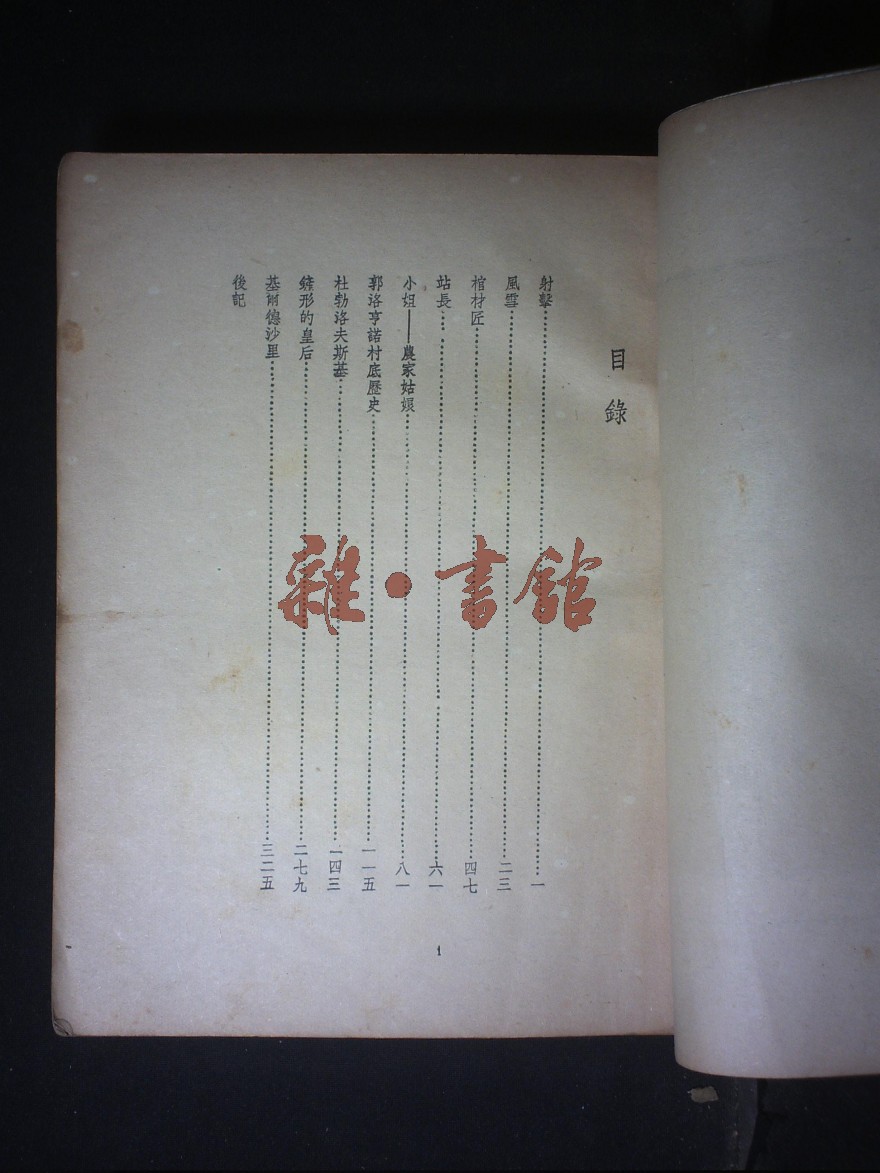 目錄
射擊……一
風雪……二三
棺材匠……四七
站長……六一
小姐——農家姑娘……八一
郭洛亨諾村底歷史……一一五
杜勃洛夫斯基……一四三
鏟形的皇后……二七九
基爾德沙里……三二五
後記
1
雜·書館